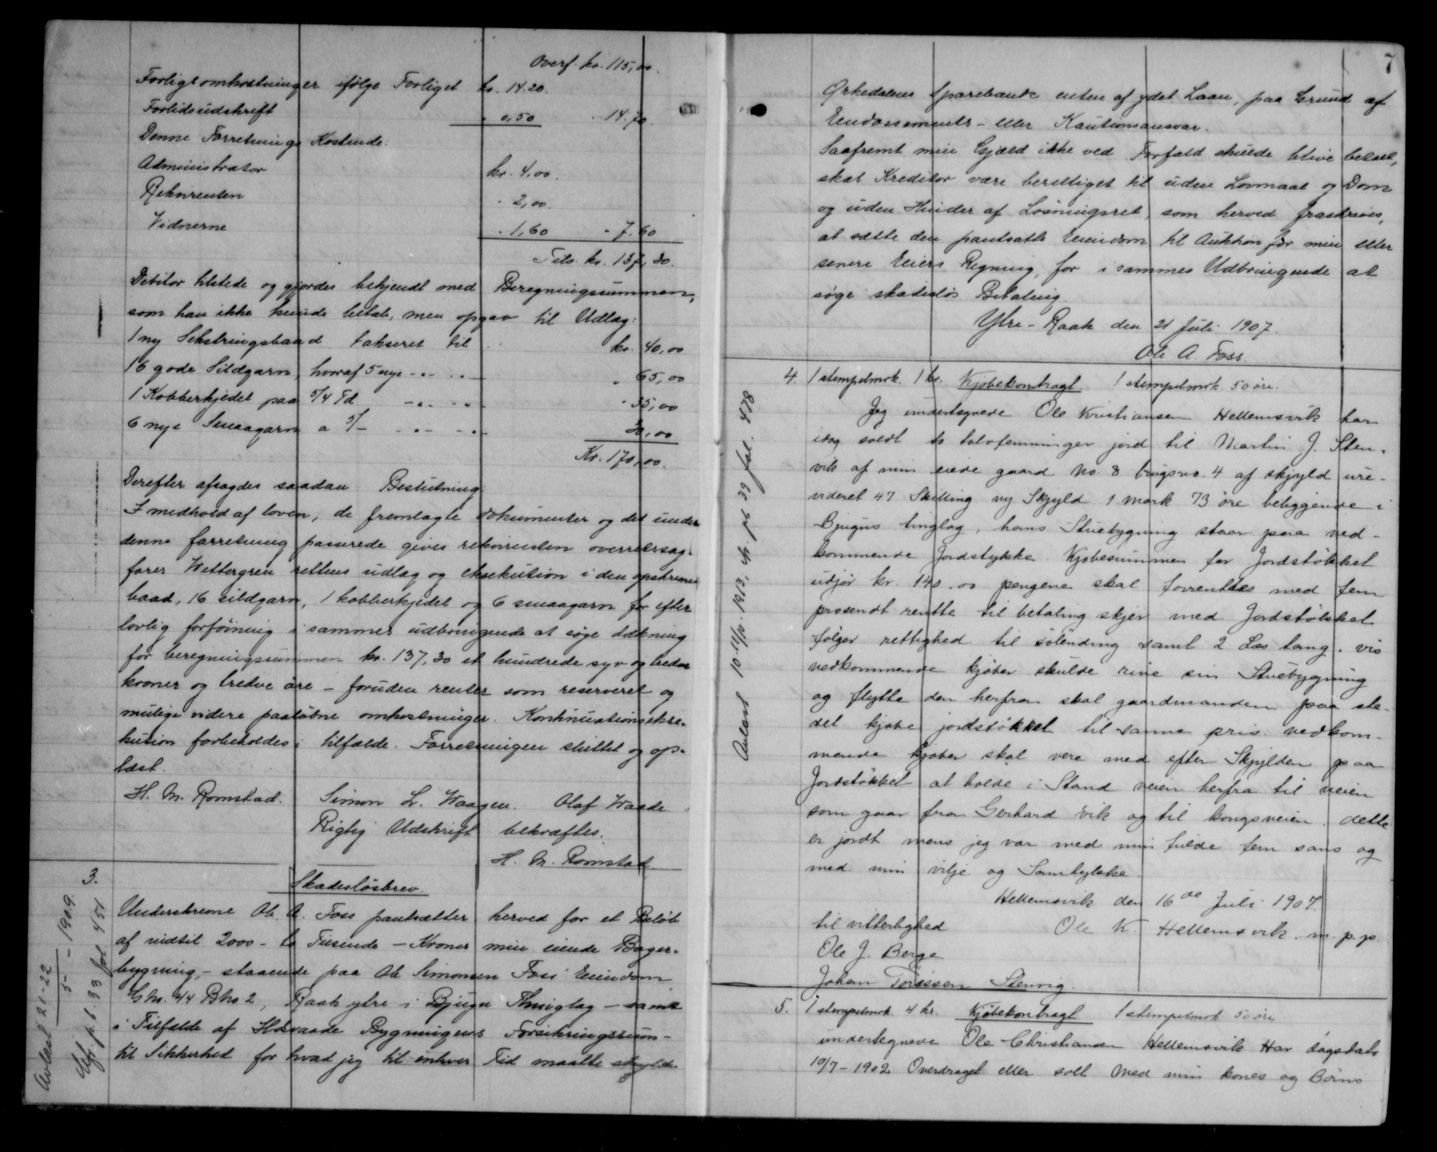 Overf. kr. 115,00.
Forligsomkostninger ifølge Forliget kr. 14.20.
Forligsudskrift " 0,50 " 14,70
Denne Forretnings Kostende:
Administrator kr. 4.00.
Rekvirenten " 2,00.
Vidnerne " 1,60 " 7,60
Tils. kr. 137,30.
Debitor tilstede og gjordes bekjendt med Beregningssummen,
som han ikke kunde betale, men opgav til Udlæg:
1 ny Sekstringsbaad takseret til kr. 40,00
16 gode Sildgarn, hvoraf 5 nye " 65,00
1 Kobberkjedel paa 3/4 Td " 35,00
6 nye Smaagarn a 5/- 30,00
Kr. 170,00.
Derefter afsagdes saadan Beslutning
I medhold af loven, de fremlagte dokumenter og det under
denne forretning passerede gives rekvirenten overretssag-
fører Wettergren rettens udlæg og eksekution i den opskrevne
baad, 16 sildgarn, 1 kobberkjedel og 6 smaagarn for efter
lovlig forføining i sammes udbringende at søge dækning
for beregningssummen kr. 137,30 et hundrede syv og tredve
kroner og tredve øre – foruden renter som reserveret og
mulige videre paaløbne omkostninger. Kontinuationsekse-
kution forbeholdes i tilfælde. Forretningen sluttet og op-
læst.
H. M. Romstad. Simon L. Waagen. Olaf Waade
Rigtig Udskrift bekræftes.
H. M. Romstad
3. Skadesløsbrev.
Avlæst 21-22/5 – 1909.
Cfr. p.b. 33 fol. 451
Underskrevne Ole A. Foss pantsætter herved for et Beløb
af indtil 2000 – to Tusinde – Kroner min eiende Bager-
bygning – staaende paa Ole Simonsen Foss' Eiendom
Gno. 44 Bno 2, Raak ytre i Bjugn Thinglag – samt
i Tilfælde af Ildsvaade Bygningens Forsikringssum –
til Sikkerhed for hvad jeg til enhver Tid maatte skylde
7
Ørkedalens Sparebank enten af ydet Laan, paa Grund af
Endossements – eller Kautionsansvar.
Saafremt min Gjæld ikke ved Forfald skulde blive betalt,
skal Kreditor være berettiget til uden Lovmaal og Dom
og uden Hinder af Løsningsret, som herved frasskrives,
at sætte den pantsatte Eiendom til Auktion for min eller
senere Eiers Regning, for i sammes Udbringende at
søge skadesløs Betaling.
Ytre – Raak den 21 Juli 1907.
Ole A. Foss
4. 1 stempelmrk. 1 kr. Kjøbekontragt 1 stempelmrk 50 øre.
Avlæst 10-11/10. 1913, cfr. pb 39 fol. 478
Jeg undertegnede Ole Kristiansen Hellemsvik har
idag soldt to tolvfemninger jord til Martin J. Sten-
vik af min eiede gaard No. 8 brugsno. 4 af skjyld ure-
videret 47 Skilling ny Skjyld 1 mark 73 øre beliggende i
Bjugns tinglag, hans Stuebygning staar paa ved-
kommende Jordstykke. Kjøbesummen for Jordstøkket
udgjør kr. 140.00 pengene skal forrentes med fem
prosendt rentte til betaling skjer med Jordstøkket
følger rettighed til stølending samt 2 Læs tang. vis
vedkommende kjøber skulde rive sin Stuebygning
og flytte den herfra skal gaardmanden paa ste-
det kjøbe jordstøkket til samme pris. vedkom-
mende kjøber skal vere med efter Skjylden paa
Jordstøkket at holde i Stand veien herfra til veien
som gaar fra Gerhard vik og til kongsveien. dette
er jordt mens jeg var med min fulde fem sans og
med min vilje og Samtykke.
Hellemsvik den 16de Juli 1907.
til vitterlighed Ole K. Hellemsvik. m. p. p.
Ole J. Berge
Johan Torissen Stenvig.
5. 1 stempelmrk 4 kr. Kjøbekontragt 1 stempelmrk 50 øre
undertegnede Ole Christiansen Hellemsvik Har dagsdato
10/7 – 1902 Overdraget eller solt med min kones og Børns